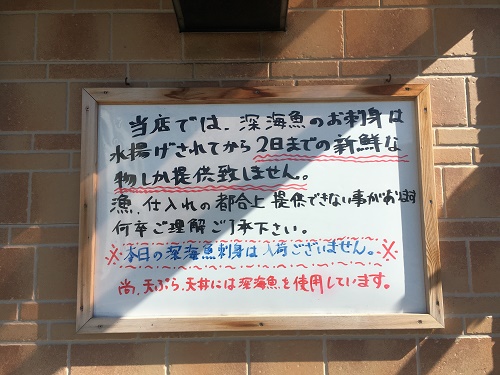 当店では、深海魚のお刺身は
水揚げされてから2日までの新鮮な
物しか提供致しません。
漁、仕入れの都合上提供できない事があります
何卒ご理解ご了承下さい。
※本日の深海魚刺身は入荷ございません。※
尚、天ぷら、天丼には深海魚を使用しています。